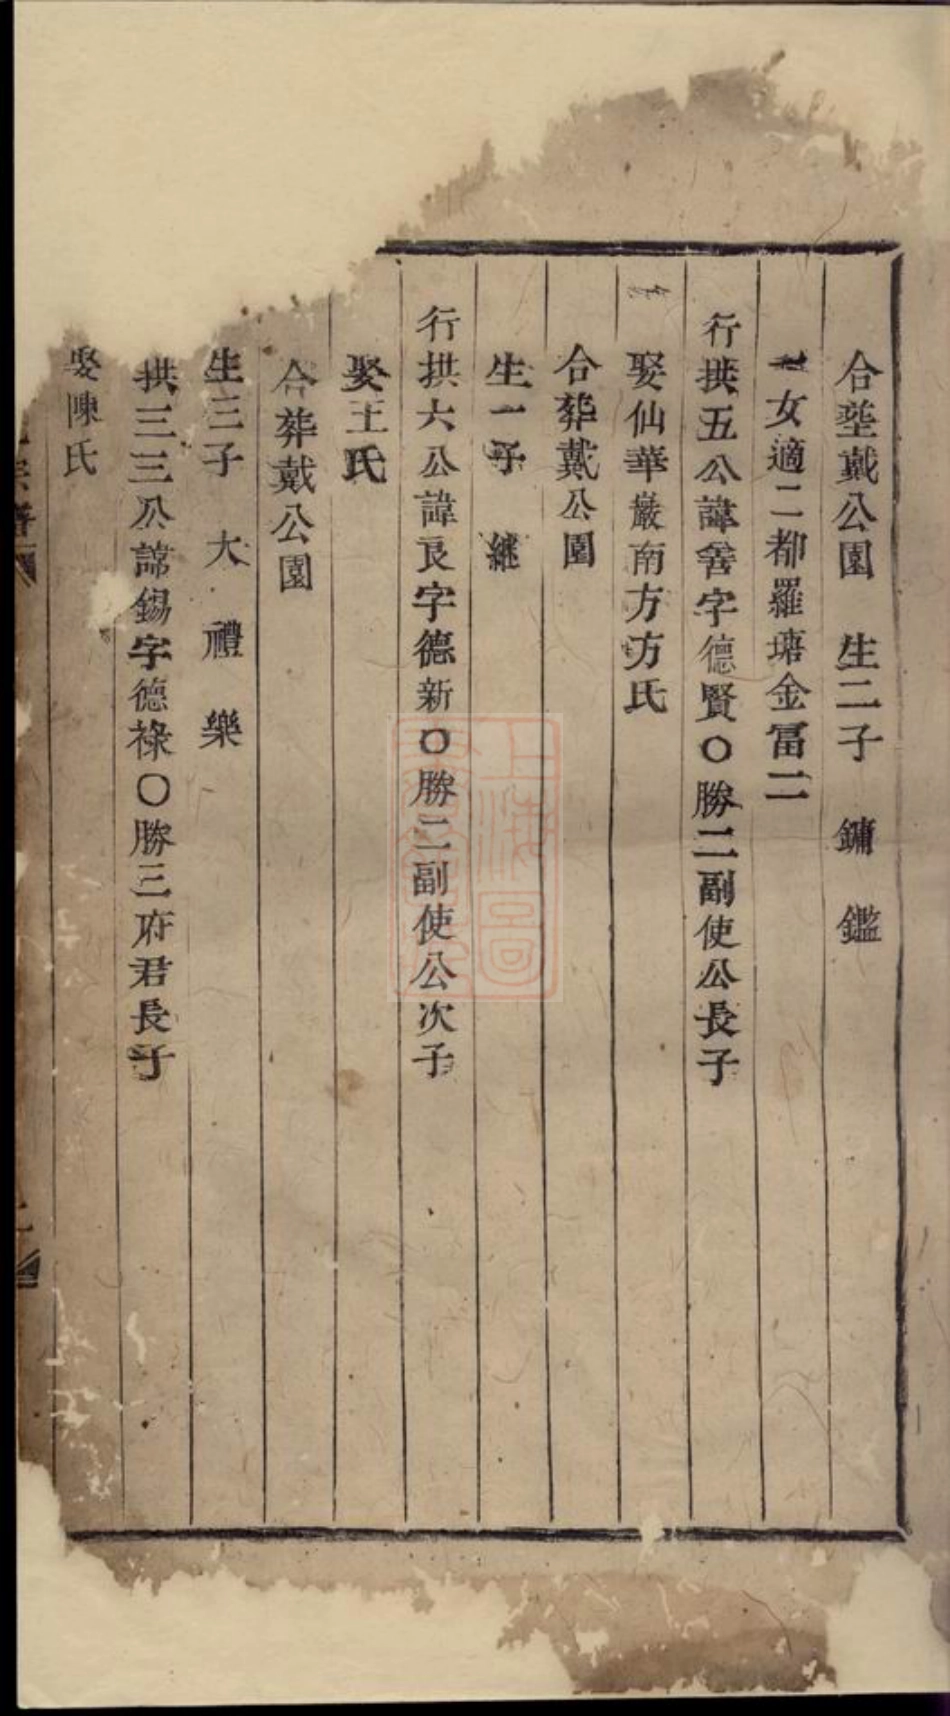 合塟戴公園　生二子　鏞　鑑
一女適二都羅塘金富二
行拱五公諱善字德賢○勝二副使公長子
娶仙華巖南方方氏
合葬戴公園
生一子　繼
行拱六公諱良字德新○勝二副使公次子
娶王氏
合葬戴公園
生三子　大　禮　樂
拱三三公諱錫字德祿○勝三府君長子
娶陳氏
宗譜
上海圖書館藏